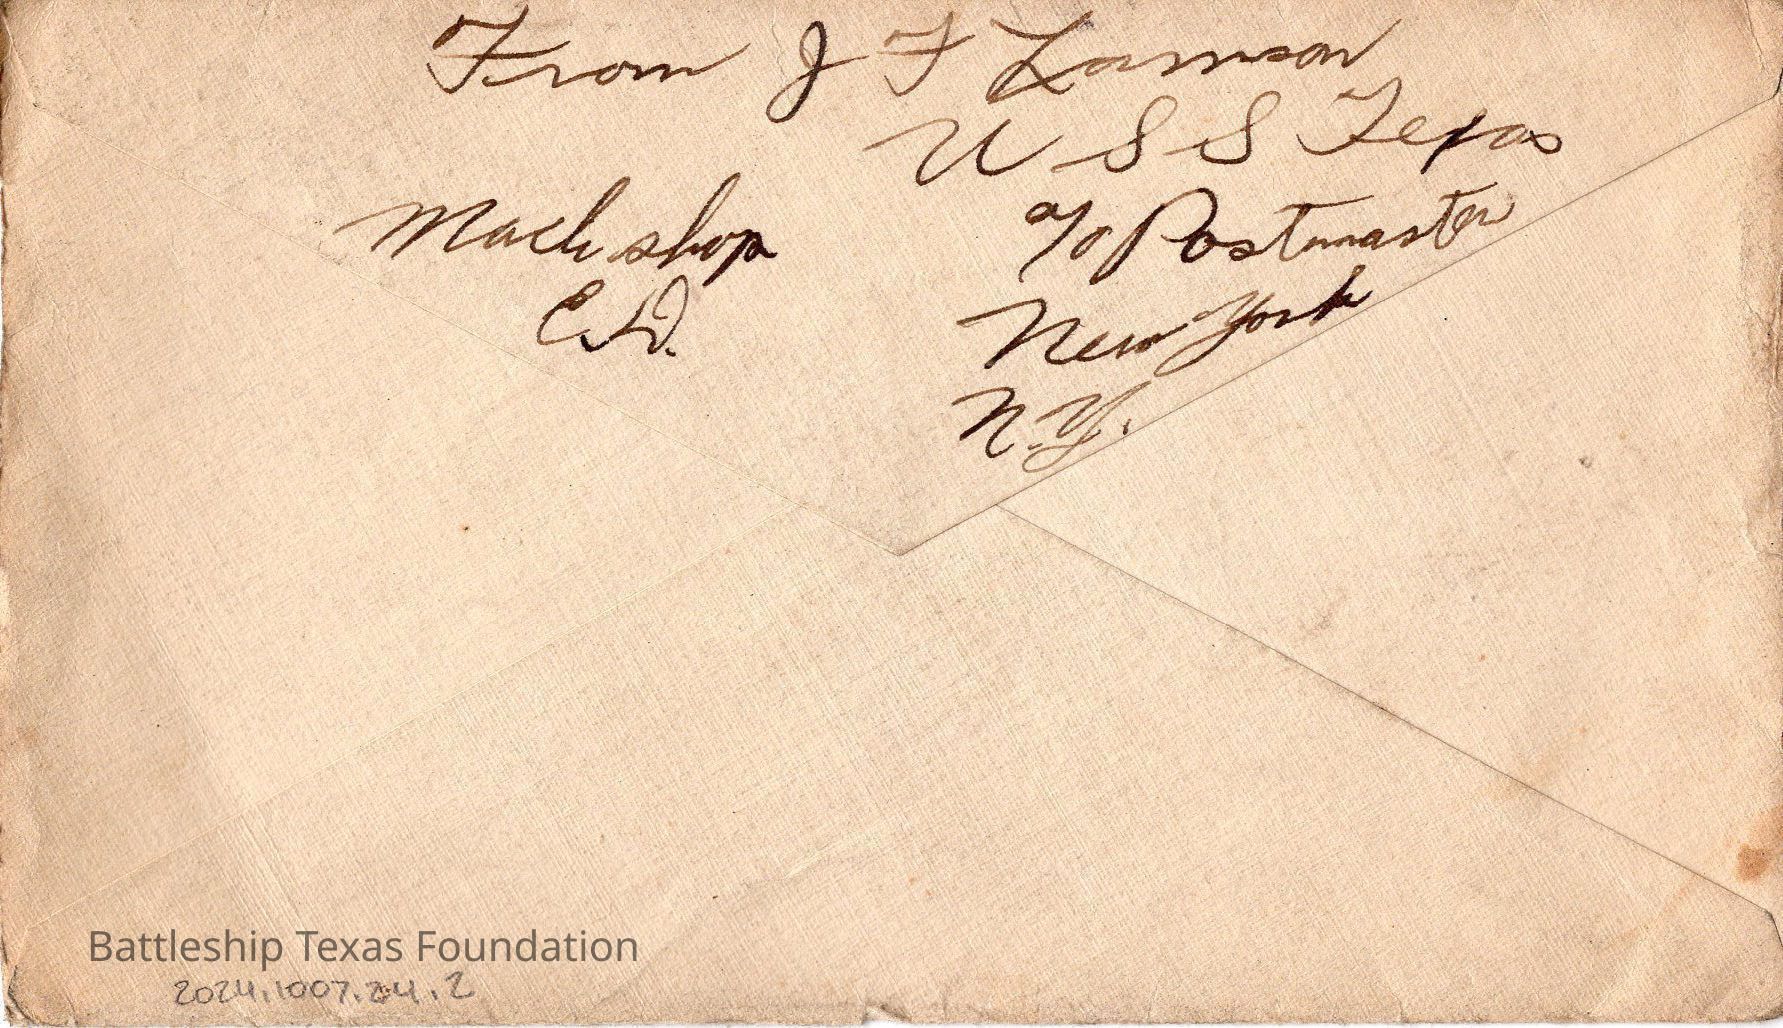 From J F Lamson
U S S Texas
Mach shop
E.D.
c/o Postmaster
New York
N.Y.
Battleship Texas Foundation
2024.1007.24.2